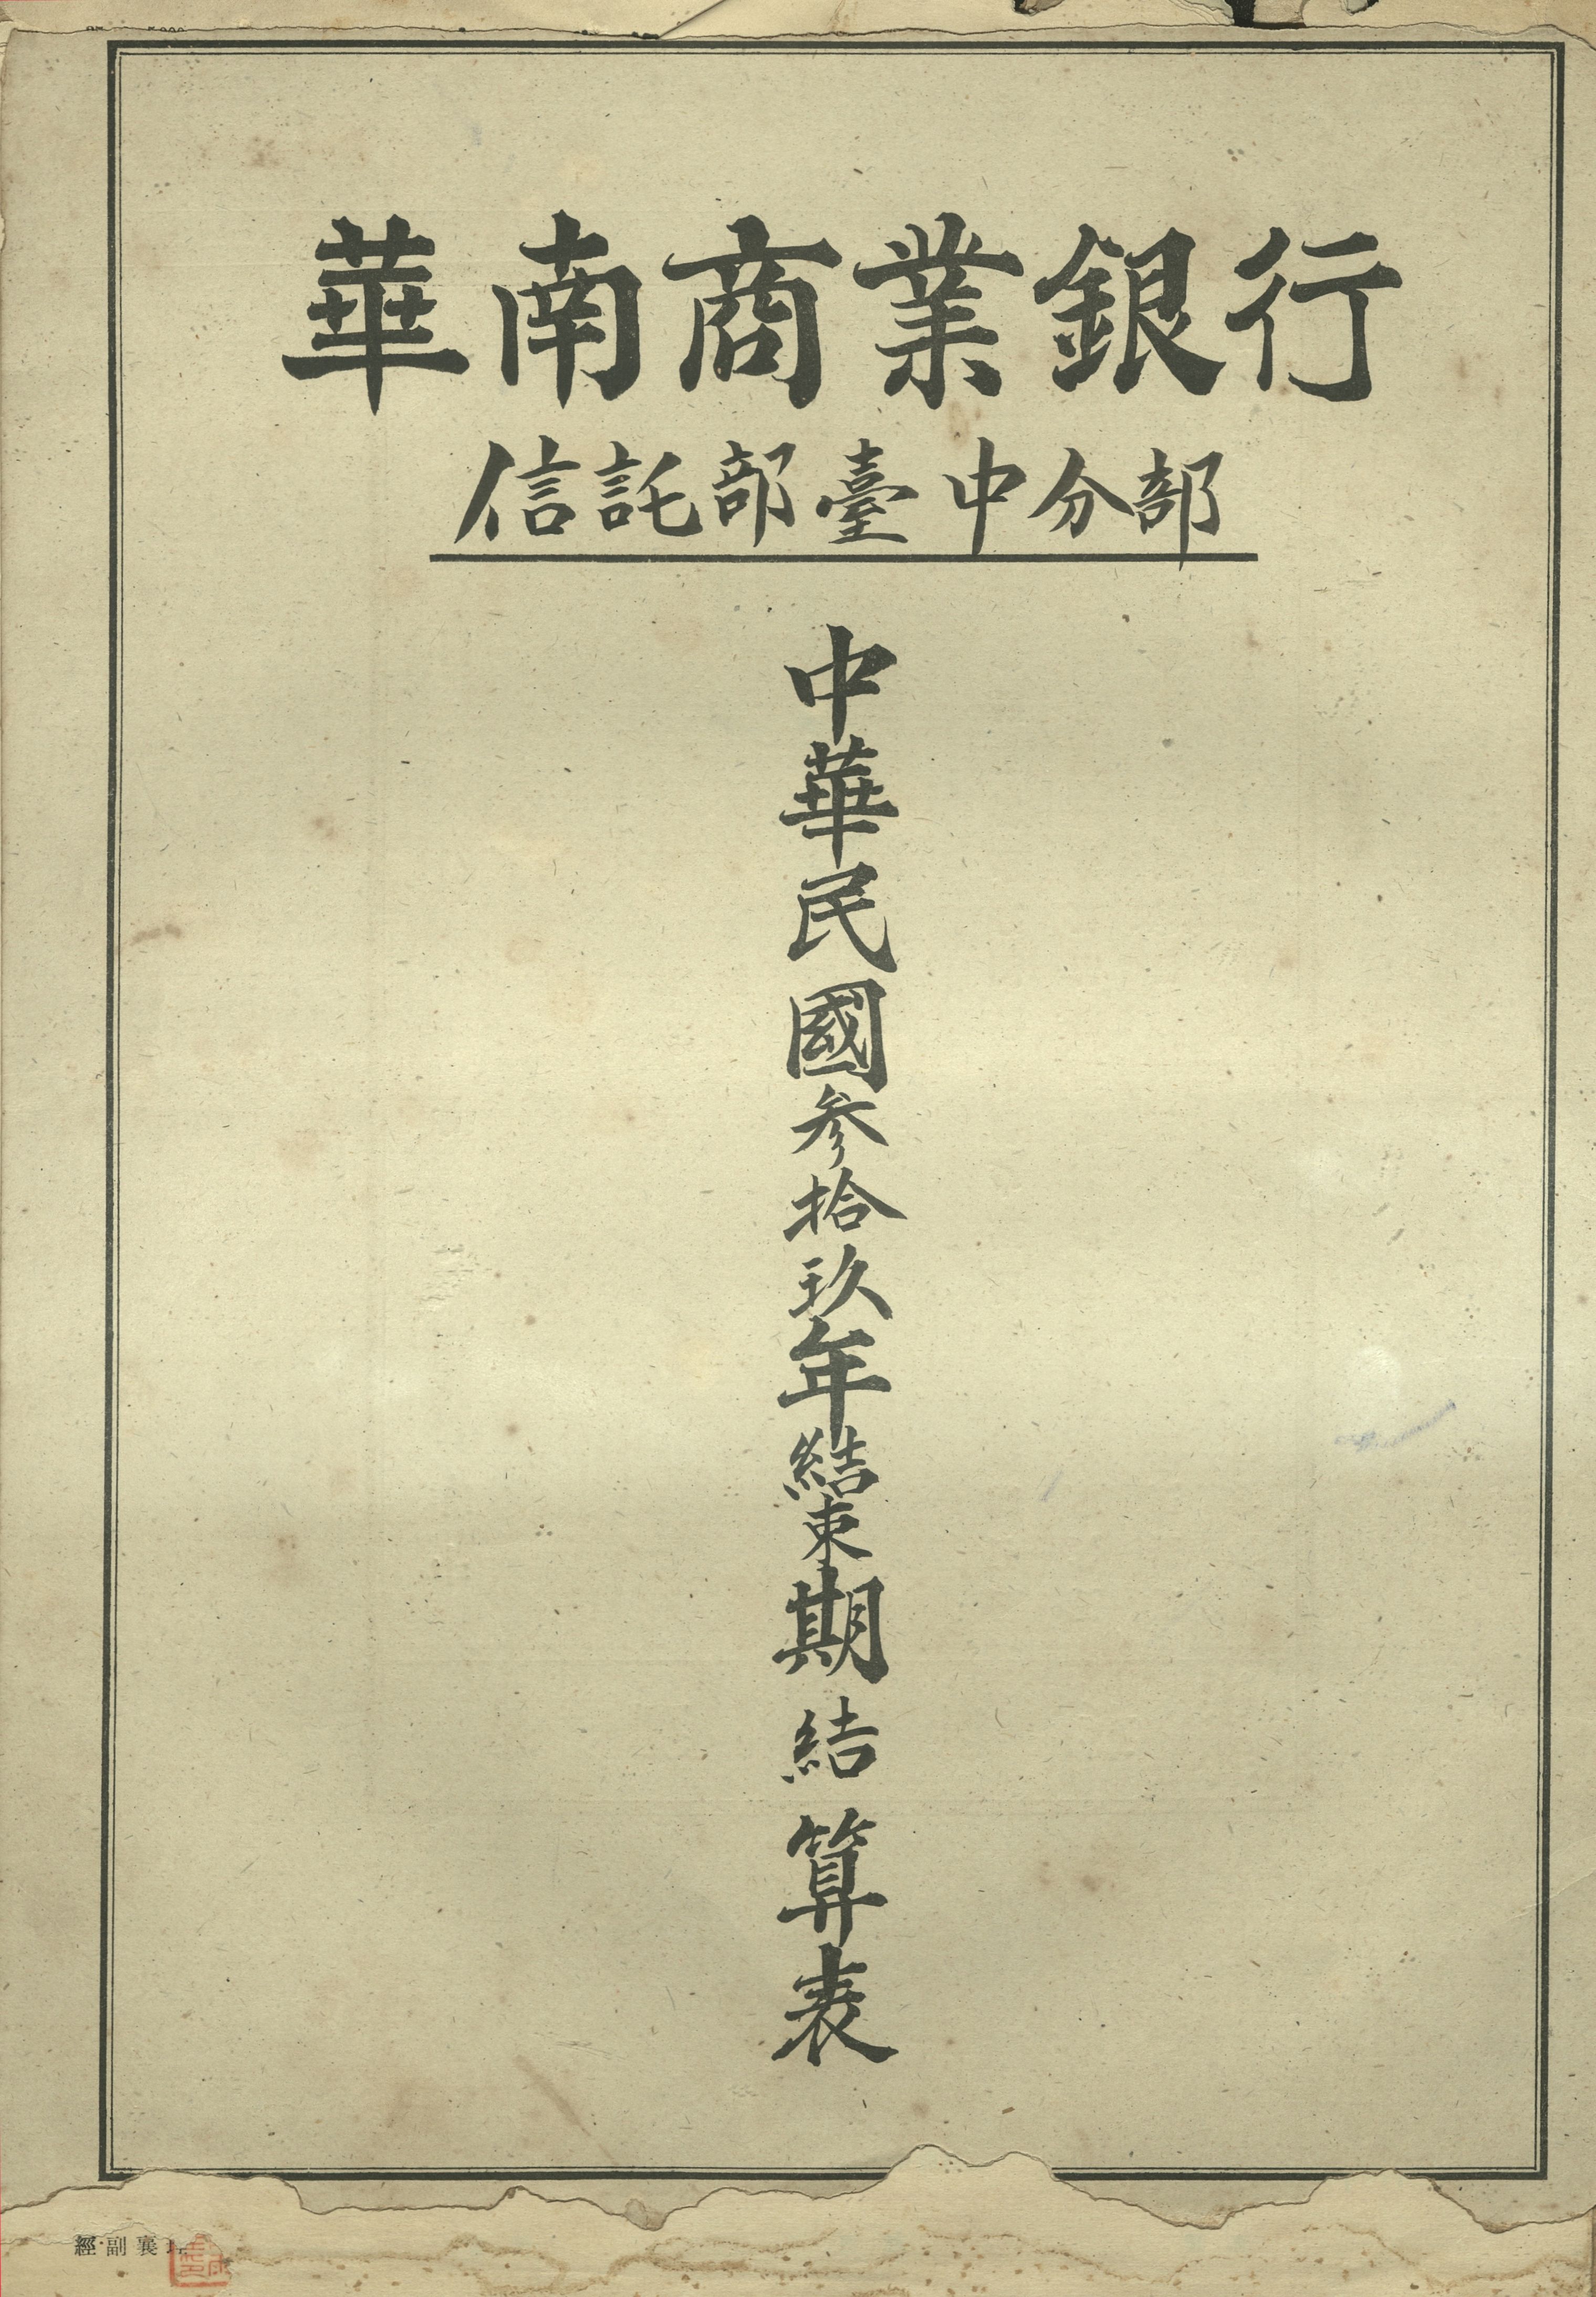 華南商業銀行
信託部臺中分部
中華民國参拾玖年結束期結算表
經副襄